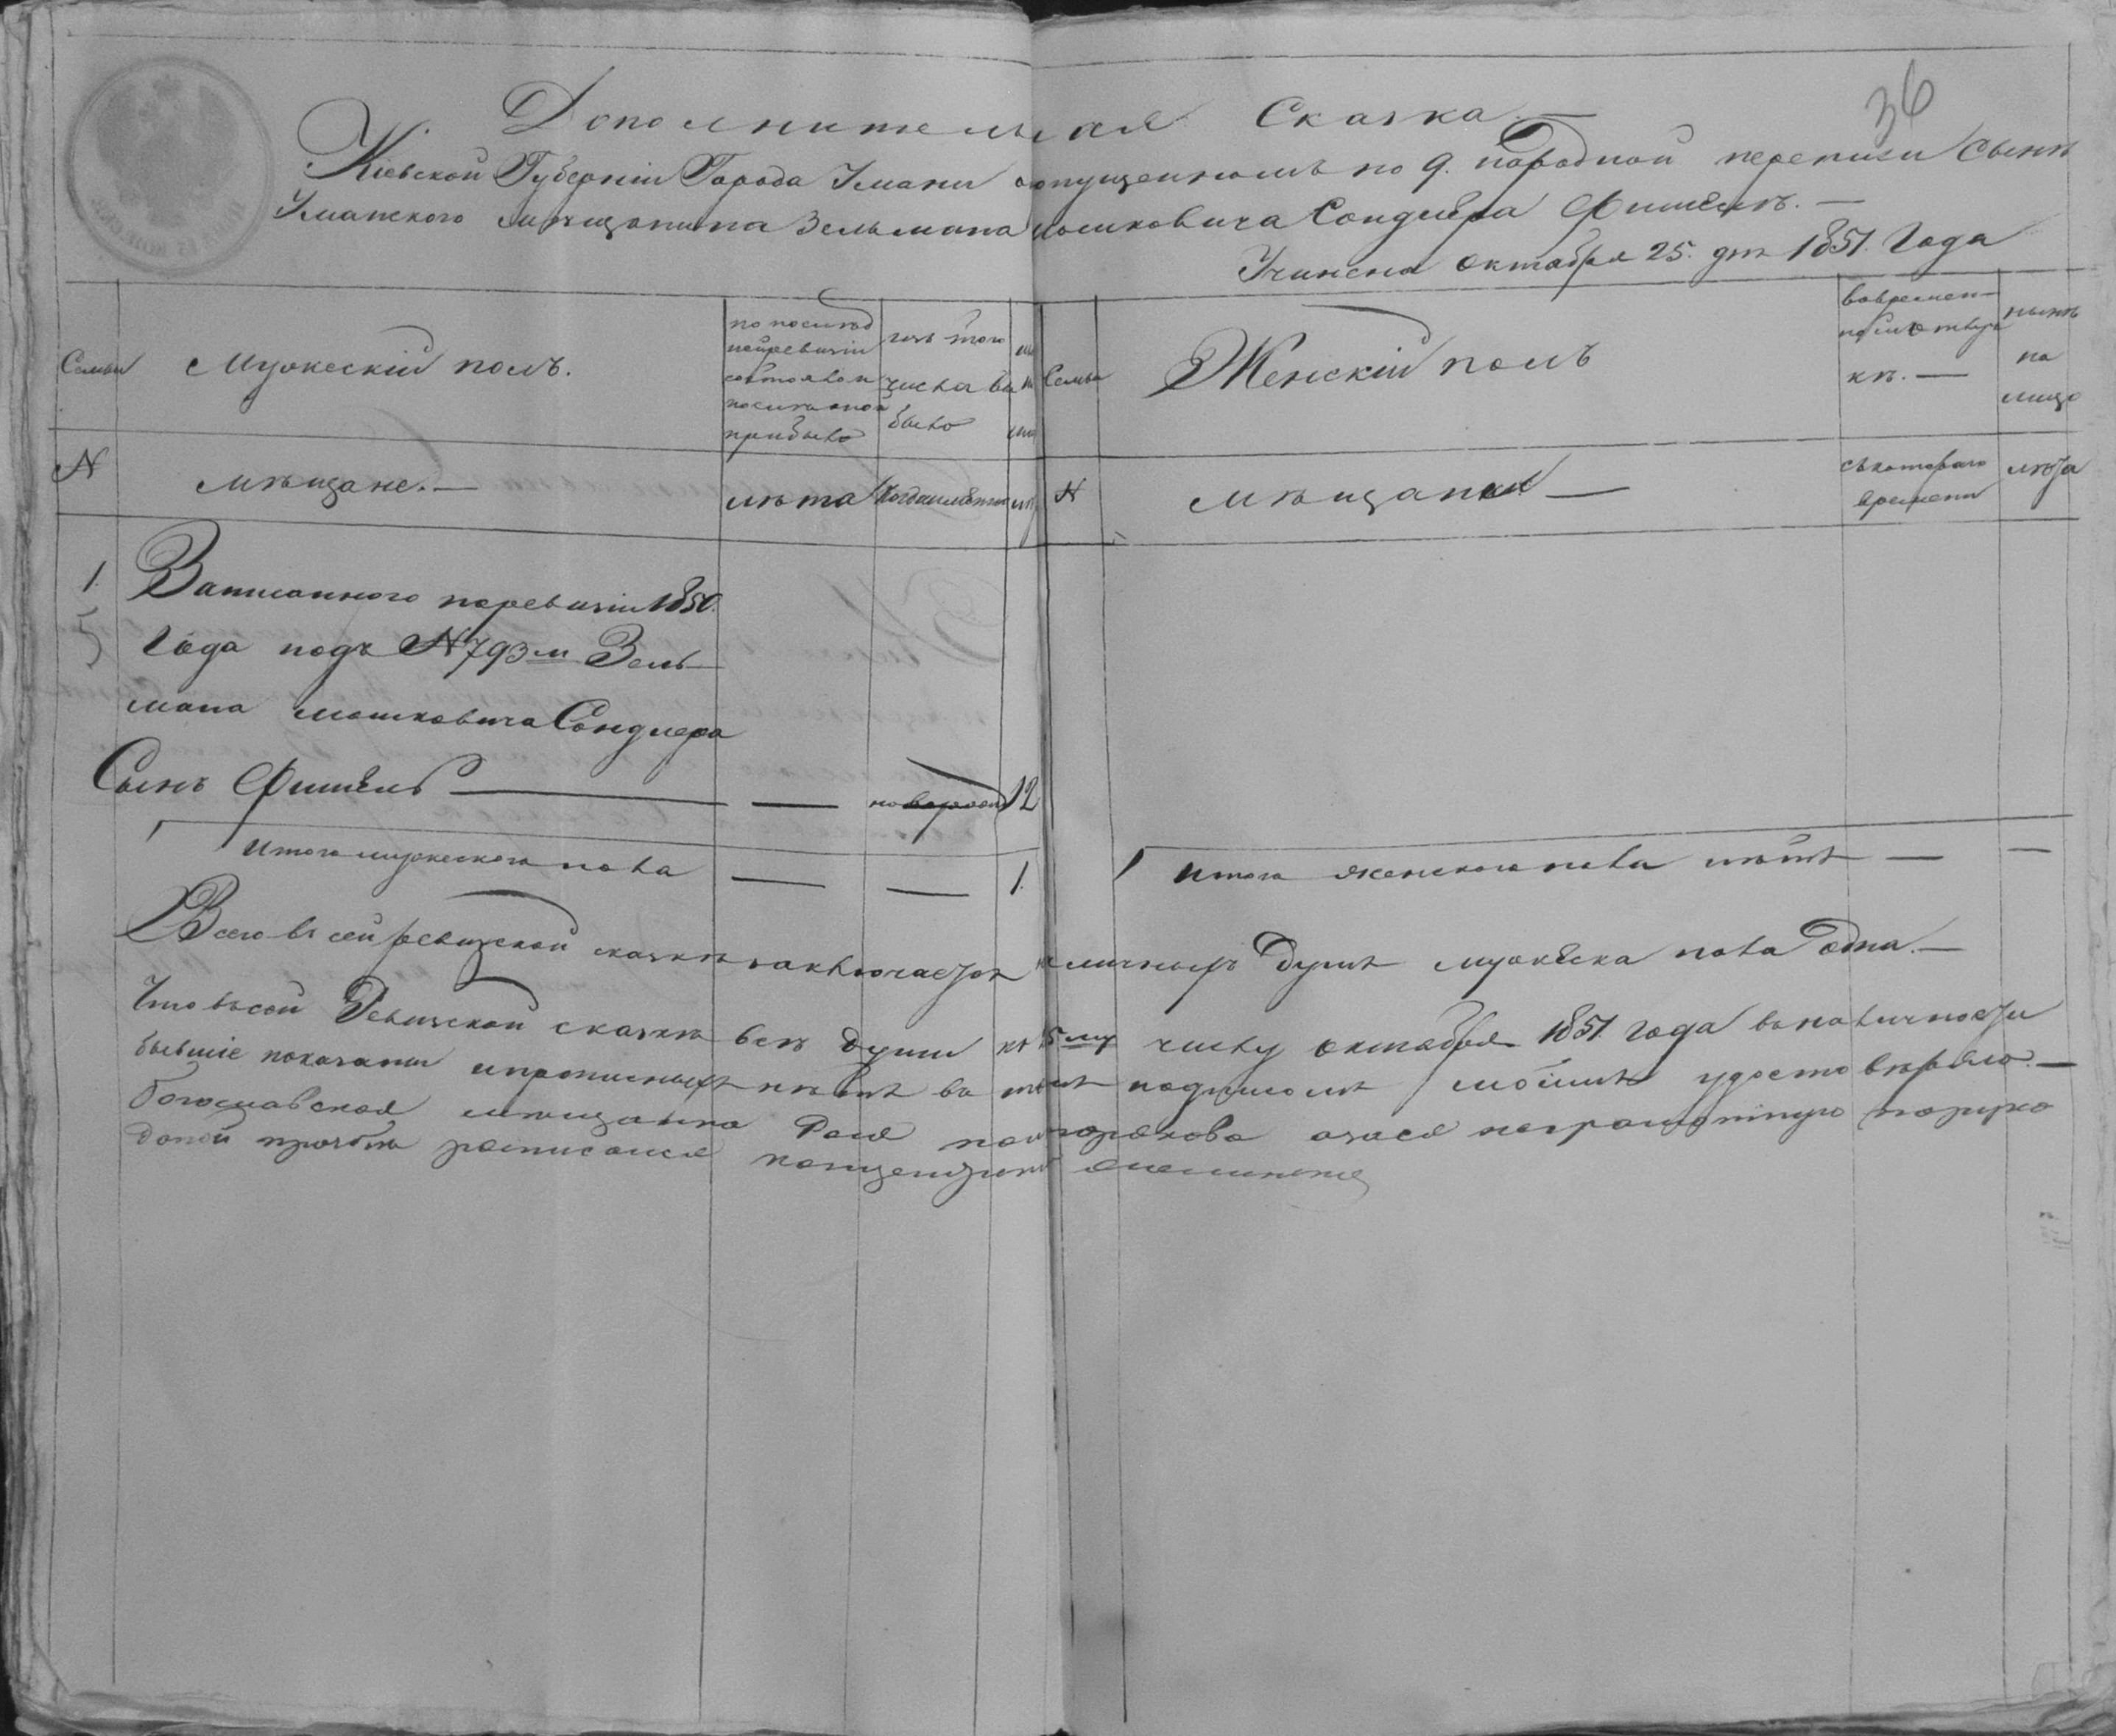 36
Дополнительная Сказка
Кіевской Губерніи Города Умани о пропущенномъ по 9. народной переписи сынѣ
Уманского мѣщанина Зельмана Мошковича Сондлера Фишелѣ.
Учинена октября 25. дня 1851. Года
Семьи
Мужескій полъ.
по послѣд
ней ревизіи
состояло и
послѣ оной
прибыло
изъ того
числа вы
было
Семьи
Женскій полъ
во времен
ной отлуч
кѣ.
нынѣ
на
лицо
N
мѣщане.
лѣта
Когда именно
N
мѣщанки
съ котораго
времени
лѣта
1.
5
Записанного по ревизіи 1850.
Года подъ N 793 м Зель
мана Мошковича Сондлера
Сынъ Фишель — — 12
Итого мужеского пола — — 1.
Итого женского пола нѣтъ — —
Всего въ сей ревизской сказкѣ заключается наличныхъ душъ мужеска пола одна.
Что въ сей Ревизской сказкѣ всѣ души къ числу октября 1851 года въ наличности
бывшіе показаны и прописныхъ нѣтъ въ томъ подписомъ моимъ удостовѣряю.
Богославская мѣщанка неграмотную